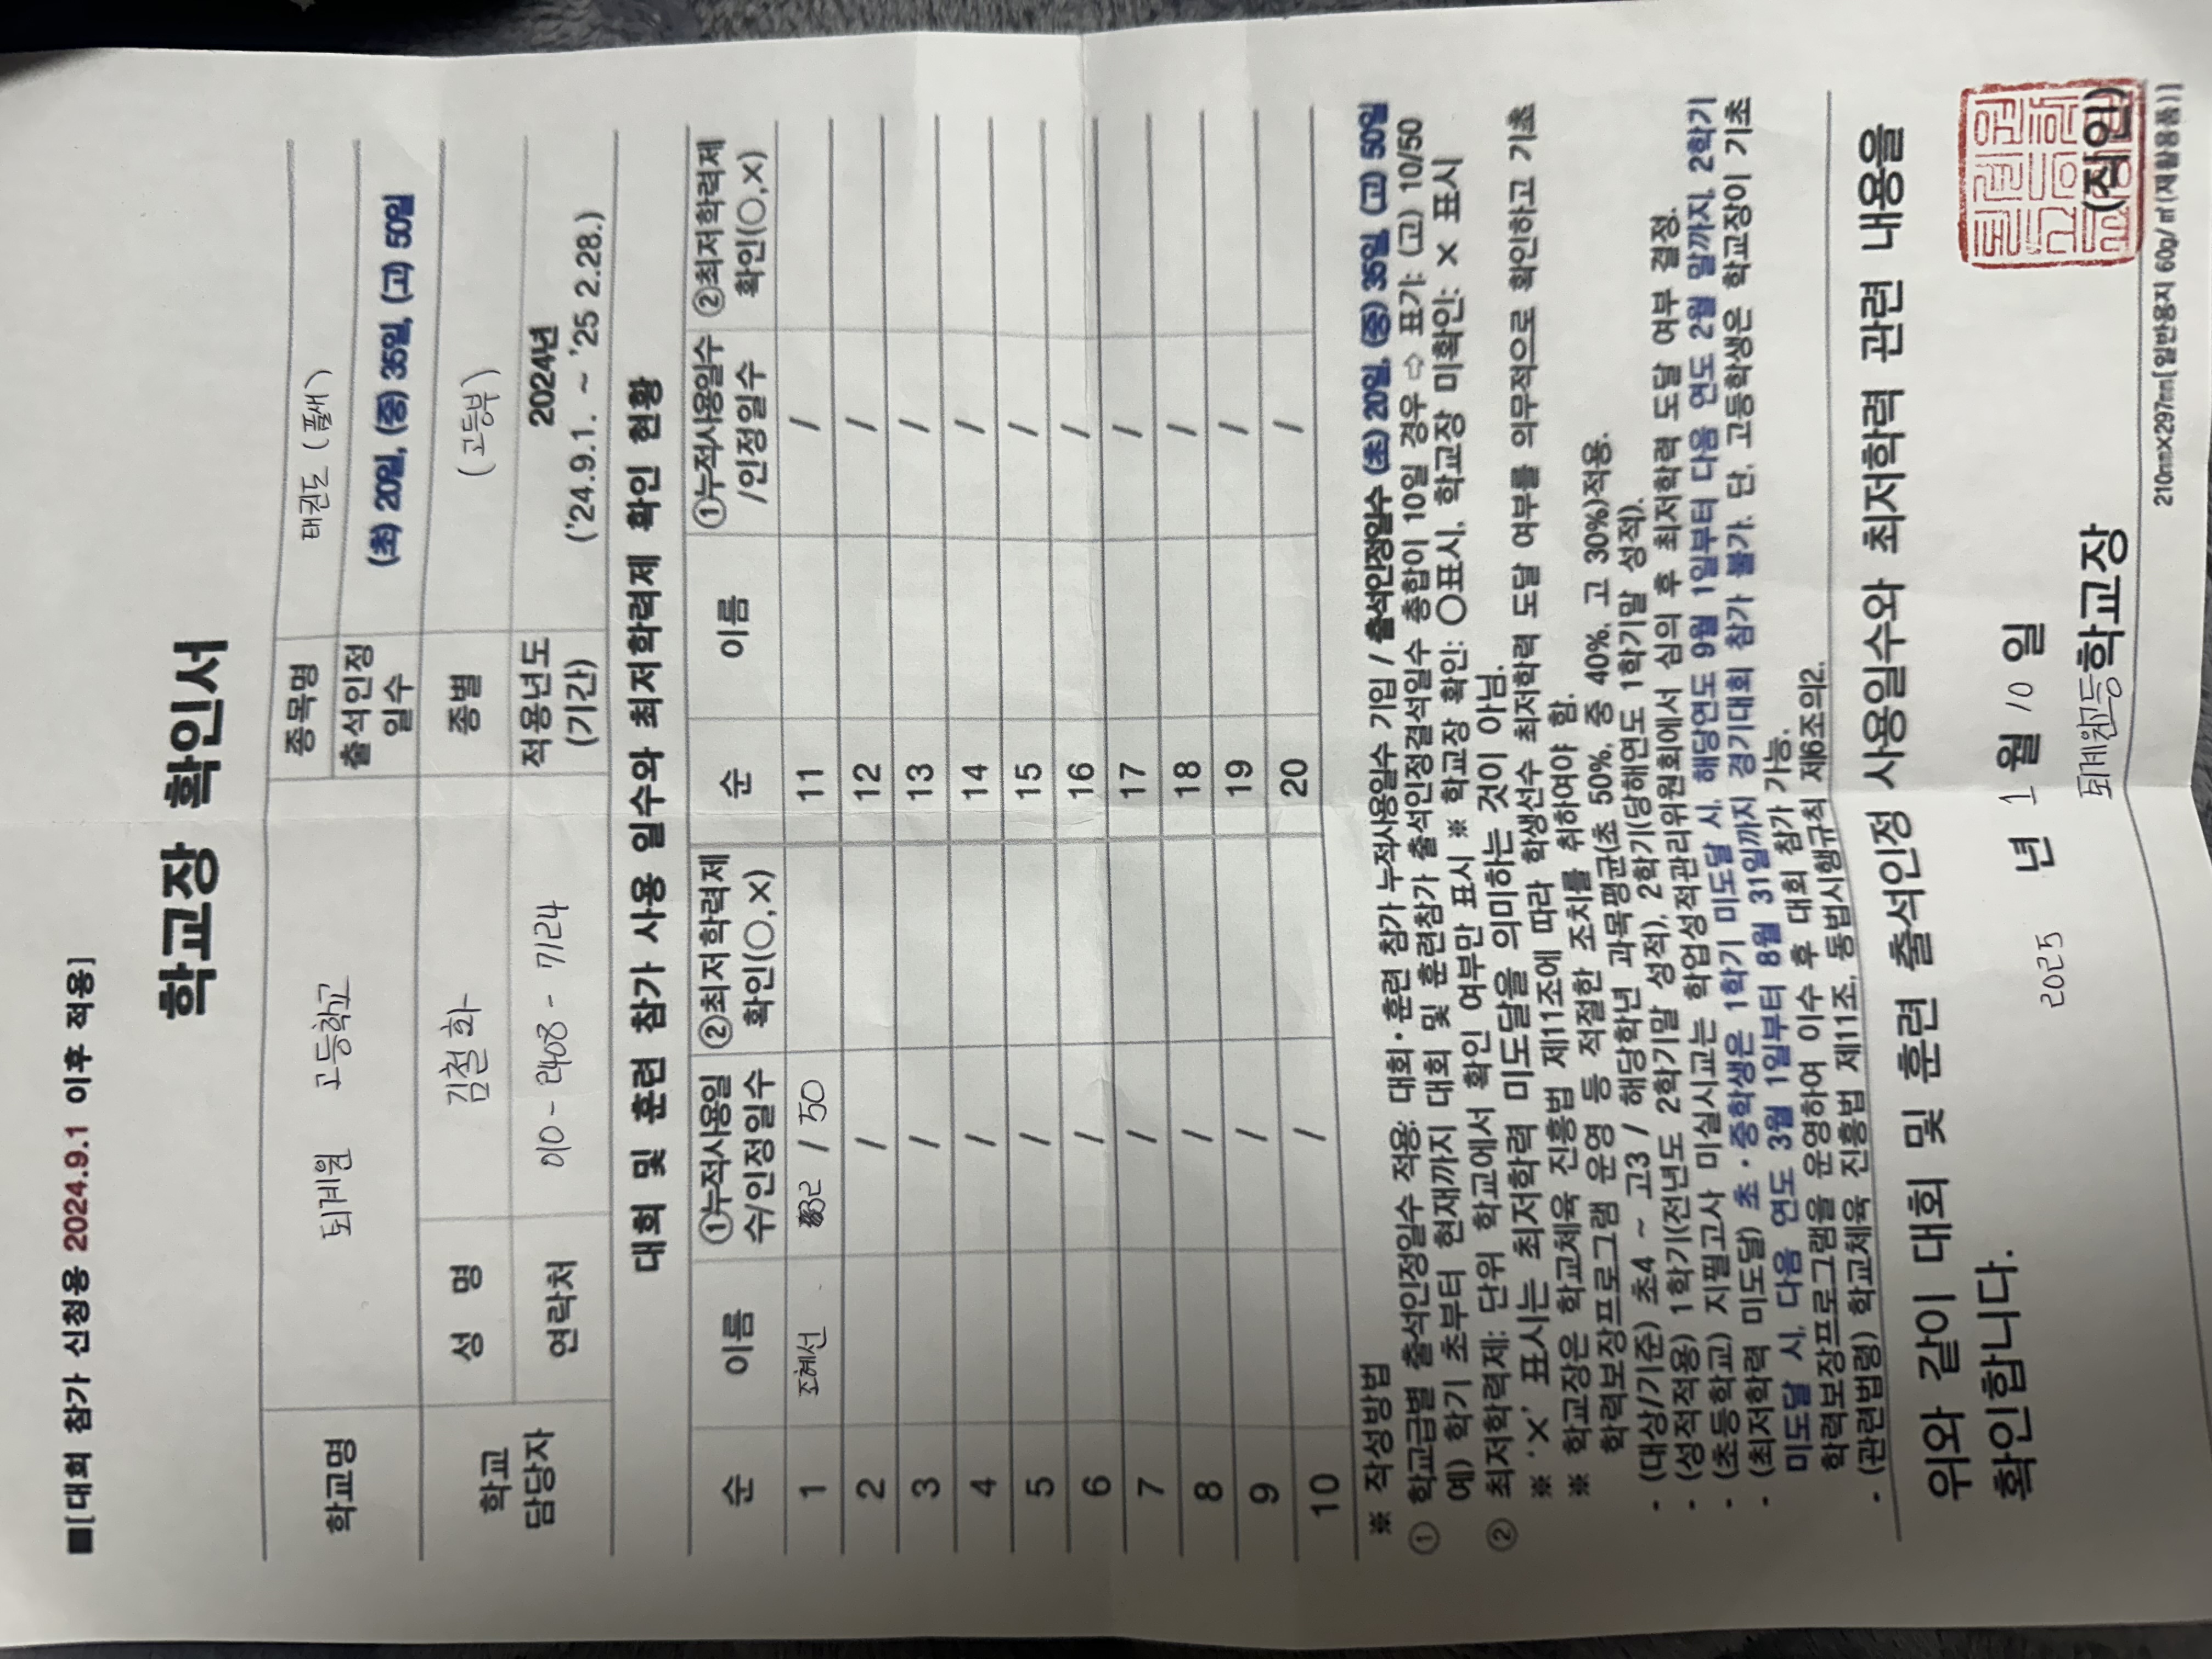 ■[대회 참가 신청용 2024.9.1 이후 적용]
학교장 확인서
학교명 퇴계원 고등학교 종목명 태권도 (품새)
출석인정 일수 (초) 20일, (중) 35일, (고) 50일
학교 담당자 성 명 김철화 종별 (고등부)
연락처 010 - 2408 - 7124 적용년도 (기간) 2024년 ('24.9.1. ~ '25 2.28.)
대회 및 훈련 참가 사용 일수와 최저학력제 확인 현황
순 이름 ①누적사용일수/인정일수 ②최저학력제 확인(○,×) 순 이름 ①누적사용일수/인정일수 ②최저학력제 확인(○,×)
1 조혜선 32 / 50 11 /
2 / 12 /
3 / 13 /
4 / 14 /
5 / 15 /
6 / 16 /
7 / 17 /
8 / 18 /
9 / 19 /
10 / 20 /
※ 작성방법
① 학교급별 출석인정일수 적용: 대회·훈련 참가 누적사용일수 기입 / 출석인정일수 (초) 20일, (중) 35일, (고) 50일
예) 학기 초부터 현재까지 대회 및 훈련참가 출석인정결석일수 총합이 10일 경우 ⇨ 표기: (고) 10/50
② 최저학력제: 단위 학교에서 확인 여부만 표시 ※ 학교장 확인: ○표시, 학교장 미확인: × 표시
※ '×' 표시는 최저학력 미도달을 의미하는 것이 아님.
※ 학교장은 학교체육 진흥법 제11조에 따라 학생선수 최저학력 도달 여부를 의무적으로 확인하고 기초
학력보장프로그램 운영 등 적절한 조치를 취하여야 함.
- (대상/기준) 초4 ~ 고3 / 해당학년 과목평균(초 50%, 중 40%, 고 30%)적용.
- (성적적용) 1학기(전년도 2학기말 성적), 2학기(당해연도 1학기말 성적).
- (초등학교) 지필고사 미실시교는 학업성적관리위원회에서 심의 후 최저학력 도달 여부 결정.
- (최저학력 미도달) 초·중학생은 1학기 미도달 시, 해당연도 9월 1일부터 다음 연도 2월 말까지, 2학기
미도달 시, 다음 연도 3월 1일부터 8월 31일까지 경기대회 참가 불가. 단, 고등학생은 학교장이 기초
학력보장프로그램을 운영하여 이수 후 대회 참가 가능.
- (관련법령) 학교체육 진흥법 제11조, 동법시행규칙 제6조의2.
위와 같이 대회 및 훈련 출석인정 사용일수와 최저학력 관련 내용을
확인합니다.
2025 년 1 월 10 일
퇴계원고등학교장 (직인)
210㎜×297㎜[일반용지 60g/㎡(재활용품)]